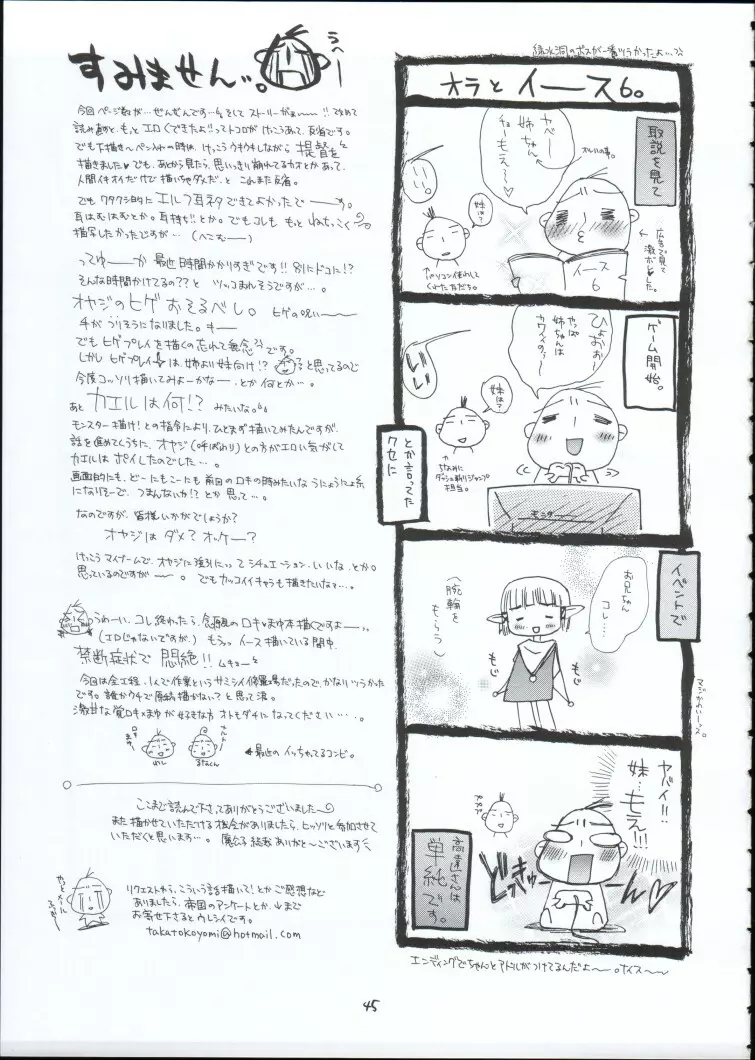 すみません…。
うへー
今回ページ数が…ぜんぜんです…そしてストーリーがぁ〜〜!! 改めて
読み直すと、もっとエロくできたよ!!ってトコロがけっこうあって、反省です。
でも下描き〜ペン入れの時は、けっこうウキウキしながら提督を
描きました♥でも、あとから見たら、思いっきり崩れてるカオとかあって、
人間イキオイだけで描いちゃダメだ。と これまた反省。
でもワタクシ的にエルフ耳ネタできてよかったで〜〜す。
耳はむはむとか。耳持ち!!とか。でもコレももっとねちっこく
描写したかったですが…(へこむ〜)
ってゆ〜〜か 最近時間かかりすぎです!! 別にドコに!?
そんな時間かけてるの??と ツッコまれそうですが〜…。
オヤジのヒゲ おそるべし。 ヒゲの呪い〜〜
手がつりそうになりました。キー
でもヒゲプレイを描くの忘れて無念です。
しかし ヒゲプレイは、姉より妹向け!? と思ってるので
今度コッソリ描いてみよーかなー、とか何とか…。
あと カエルは何!? みたいな。
モンスター描け!との指令により、ひとまず描いてみたんですが、
話を進めてくうちに、オヤジ(呼ばわり)との方がエロい気がして
カエルは ポイしたのでした…。
画面的にも、どーにもこーにも 前回のロキの時みたいなうにょうにょ系
になりそーで、つまんないか!?とか思って…。
なのですが、皆様いかがでしょうか?
オヤジは ダメ? オッケー?
けっこうマイブームで、オヤジに強引にってシチュエーション、いいな、とか。
思っているのですが〜〜。 でもカッコイイキャラも描きたいなぁ…。
うめーい、コレ終わったら、念願のロキ×まゆ本描くですよー…
(エロじゃないですが、) もうっ イース描いている間中、
禁断症状で 悶絶!! ムキョー
今回は全工程、1人で作業というサミシイ修羅場だったので、かなりツラかった
です。誰かウチで原稿描かない?と思って涙。
激甘な覚ロキ×まゆが好きな方 オトモダチになってください…。
←最近のイッちゃてるコンビ。
ここまで読んで下さってありがとうございました〜
また描かせていただける機会がありましたら、ヒッソリと参加させて
いただくと思います…。
リクエストやら、こういう話描いて!とか ご感想など
ありましたら、帝国のアンケートとか、↓まで
お寄せ下さるとウレシイです。
takatokoyomi@hotmail.com
緑水洞のボスが一番ツラかったよ…
オラと イース6。
取説を見て
ヤベー
姉ちゃん
チョーもえ〜〜♥
いい。
妹は?
イース
6
←広告で見て
激ホレした。
パソコン係りして
くれた友だち。
ゲーム開始。
ひょおぉー
やっぱ
姉ちゃんは
カワイイのぅ〜
いい
妹は?
ちなみに
ダッシュ斬りジャンプ
担当。
モニター
とか言ってた
クセに
イベントで
お兄ちゃん
コレ……
(腕輪を
もらう)
もじ
もじ
マジかわいーッス。
ヤバイ!!
妹…もえ!!!
どきどきゃッーん♥
高遠さんは
単純です。
エンディングでちゃんとアドルがつけてるんだよ〜〜。ナイス〜〜
45